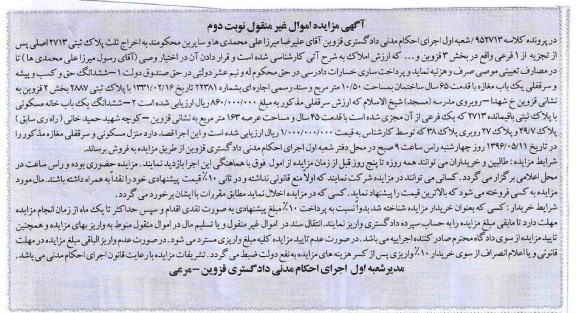 آگهی مزایده اموال غیر منقول نوبت دوم
در پرونده کلاسه ۹۵۲۷۱۳/ شعبه اول اجرای احکام مدنی دادگستری قزوین آقای علیرضا میرزاعلی محمدی ها و سایرین محکومند به اخراج ثلث پلاک ثبتی ۲۷۱۳ اصلی پس
از تجزیه از ۱ فرعی واقع در بخش ۳ قزوین و... که ارزش املاک به شرح آتی کارشناسی شده است و قرار دادن آن در اختیار وصی (آقای رسول میرزا علی محمدی ها) تا
در مصارف تعیینی موصی صرف و هزینه نماید و پرداخت ساری خسارات دادرسی در حق محکوم له و نیم عشر دولتی در حق صندوق دولت ۱-ششدانگ حق و کسب و پیشه
و سرقفلی یک باب مغازه با قدمت ۶۵ سال ساختمان بمساحت ۱۰/۵۰ متر مربع و سند رسمی اجاره ای بشماره ۲۲۳۸۱ تاریخ ۱۳۳۱/۰۲/۱۶ با پلاک ثبتی ۲۸۸۷ بخش ۲ قزوین به
نشانی قزوین خ شهدا – روبروی مدرسه (مسجد) شیخ الاسلام که ارزش سرقفلی مذکور به مبلغ ۸۶۰/۰۰۰/۰۰۰ ریال ارزیابی شده است ۲-ششدانگ یک باب خانه مسکونی
با پلاک ثبتی باقیمانده ۲۷۱۳ که یک فرعی از آن مجزی شده است با قدمت ۴۵ سال و مساحت عرصه ۱۶۳ متر مربع به نشانی قزوین – کوچه شهید حمید خانی (راه ری سابق)
پلاک ۲۹/۷ و پلاک ۲۷ روبروی پلاک ۳۸ که توسط کارشناس به قیمت ۱/۰۰۰/۰۰۰/۰۰۰ ریال ارزیابی شده است و این اجرا قصد دارد منزل مسکونی و سرقفلی مغازه مذکور را
در تاریخ ۱۳۹۶/۰۵/۱۱ روز چهارشنبه راس ساعت ۹ صبح در محل دفتر شعبه اول اجرای احکام مدنی دادگستری قزوین از طریق مزایده به فروش برساند.
شرایط مزایده: طالبین و خریداران می توانند همه روزه تا پنج روز قبل از زمان مزایده از اموال فوق با هماهنگی این اجرا بازدید نمایند. مزایده حضوری بوده و راس ساعت در
محل اعلامی برگزار می گردد. کسانی می توانند در مزایده شرکت نمایند که اولاً منع قانونی نداشته و در ثانی ۱۰٪ قیمت پیشنهادی خود را نقداً به همراه داشته باشند. مال مورد
مزایده به کسی فروخته می شود که بالاترین قیمت را پیشنهاد نماید. کسی که در مزایده اخلال نماید مطابق مقررات با ایشان برخورد می گردد.
شرایط خریدار: کسی که بعنوان خریدار مزایده شناخته شد بدواً نسبت به پرداخت ۱۰٪ مبلغ پیشنهادی به صورت نقدی اقدام و سپس حداکثر تا یک ماه از زمان انجام مزایده
مهلت دارد تا مابقی مبلغ مزایده را به حساب سپرده دادگستری واریز نمایند. انتقال سند در اموال غیر منقول و یا تسلیم مال در اموال منقول منوط به واریز بهای مزایده و همچنین
تایید مزایده از سوی دادگاه محترم صادر کننده اجراییه می باشد. در صورت عدم تایید مزایده کلیه مبلغ واریزی مسترد می شود. در صورت عدم واریز الباقی مبلغ مزایده در مهلت
قانونی و یا اعلام انصراف از سوی خریدار ۱۰٪ واریزی پس از کسر هزینه های مزایده به نفع دولت ضبط می گردد. تشریفات مزایده با رعایت قانون اجرای احکام مدنی می باشد.
مدیر شعبه اول اجرای احکام مدنی دادگستری قزوین – مرعی